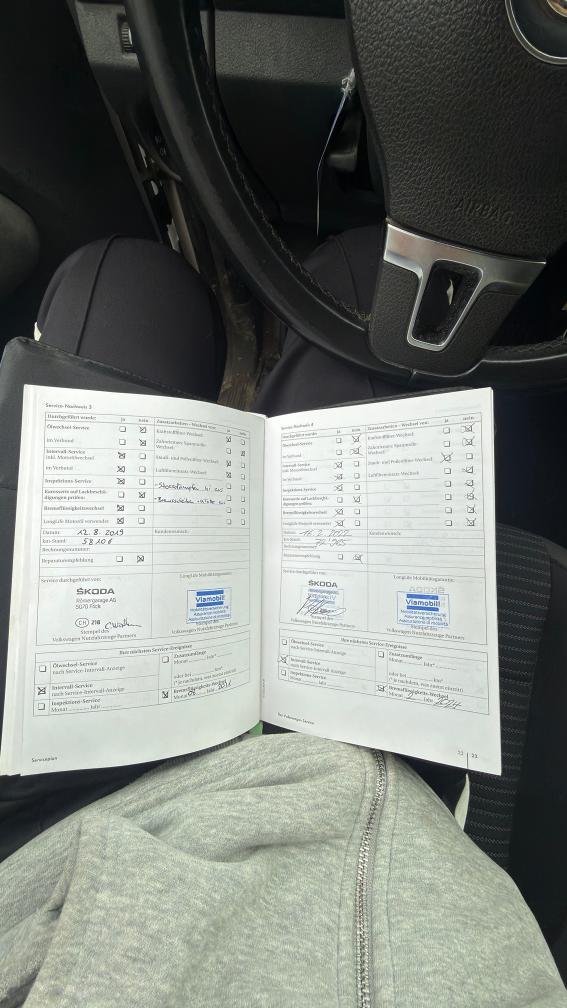 AIRBAG
Service-Nachweis 3
Durchgeführt wurde: ja nein Zusatzarbeiten - Wechsel von: ja nein
Ölwechsel-Service Kraftstofffilter-Wechsel
im Verbund Zahnriemen/ Spannrolle-Wechsel
Intervall-Service
inkl. Motorölwechsel Staub- und Pollenfilter-Wechsel
im Verbund Luftfiltereinsatz-Wechsel
Inspektions-Service
Karosserie auf Lackbeschädigungen prüfen:
Bremsflüssigkeitswechsel
LongLife Motoröl verwendet
Datum: 12.8.2019 Kundenwunsch:
km-Stand: 58106
Rechnungsnummer:
Reparaturempfehlung
Service durchgeführt von: LongLife Mobilitätsgarantie:
ŠKODA
Römergarage AG
5070 Frick
CH 218
Viamobil
Mobilitätsversicherung
Assurance mobilité
Assicurazione di mobilità
Stempel des
Volkswagen Nutzfahrzeuge Partners Volkswagen Nutzfahrzeuge Partners
Ihre nächsten Service-Ereignisse
Ölwechsel-Service Zusatzumfänge
nach Service-Intervall-Anzeige Monat Jahr*
oder bei km*
Intervall-Service (* je nachdem, was zuerst eintritt)
nach Service-Intervall-Anzeige Bremsflüssigkeits-Wechsel
Inspektions-Service Monat Jahr
Monat Jahr
Serviceplan
Service-Nachweis 4
Durchgeführt wurde: ja nein Zusatzarbeiten - Wechsel von: ja nein
Ölwechsel-Service Kraftstofffilter-Wechsel
im Verbund Zahnriemen/ Spannrolle-Wechsel
Intervall-Service
inkl. Motorölwechsel Staub- und Pollenfilter-Wechsel
im Verbund Luftfiltereinsatz-Wechsel
Inspektions-Service
Karosserie auf Lackbeschädigungen prüfen:
Bremsflüssigkeitswechsel
LongLife Motoröl verwendet
Datum: Kundenwunsch:
km-Stand:
Rechnungsnummer:
Reparaturempfehlung
Service durchgeführt von: LongLife Mobilitätsgarantie:
ŠKODA
Viamobil
Mobilitätsversicherung
Assurance mobilité
Assicurazione di mobilità
Stempel des
Volkswagen Nutzfahrzeuge Partners Volkswagen Nutzfahrzeuge Partners
Ihre nächsten Service-Ereignisse
Ölwechsel-Service Zusatzumfänge
nach Service-Intervall-Anzeige Monat Jahr*
oder bei km*
Intervall-Service (* je nachdem, was zuerst eintritt)
nach Service-Intervall-Anzeige Bremsflüssigkeits-Wechsel
Inspektions-Service Monat Jahr 2024
Monat Jahr
Der Volkswagen Service